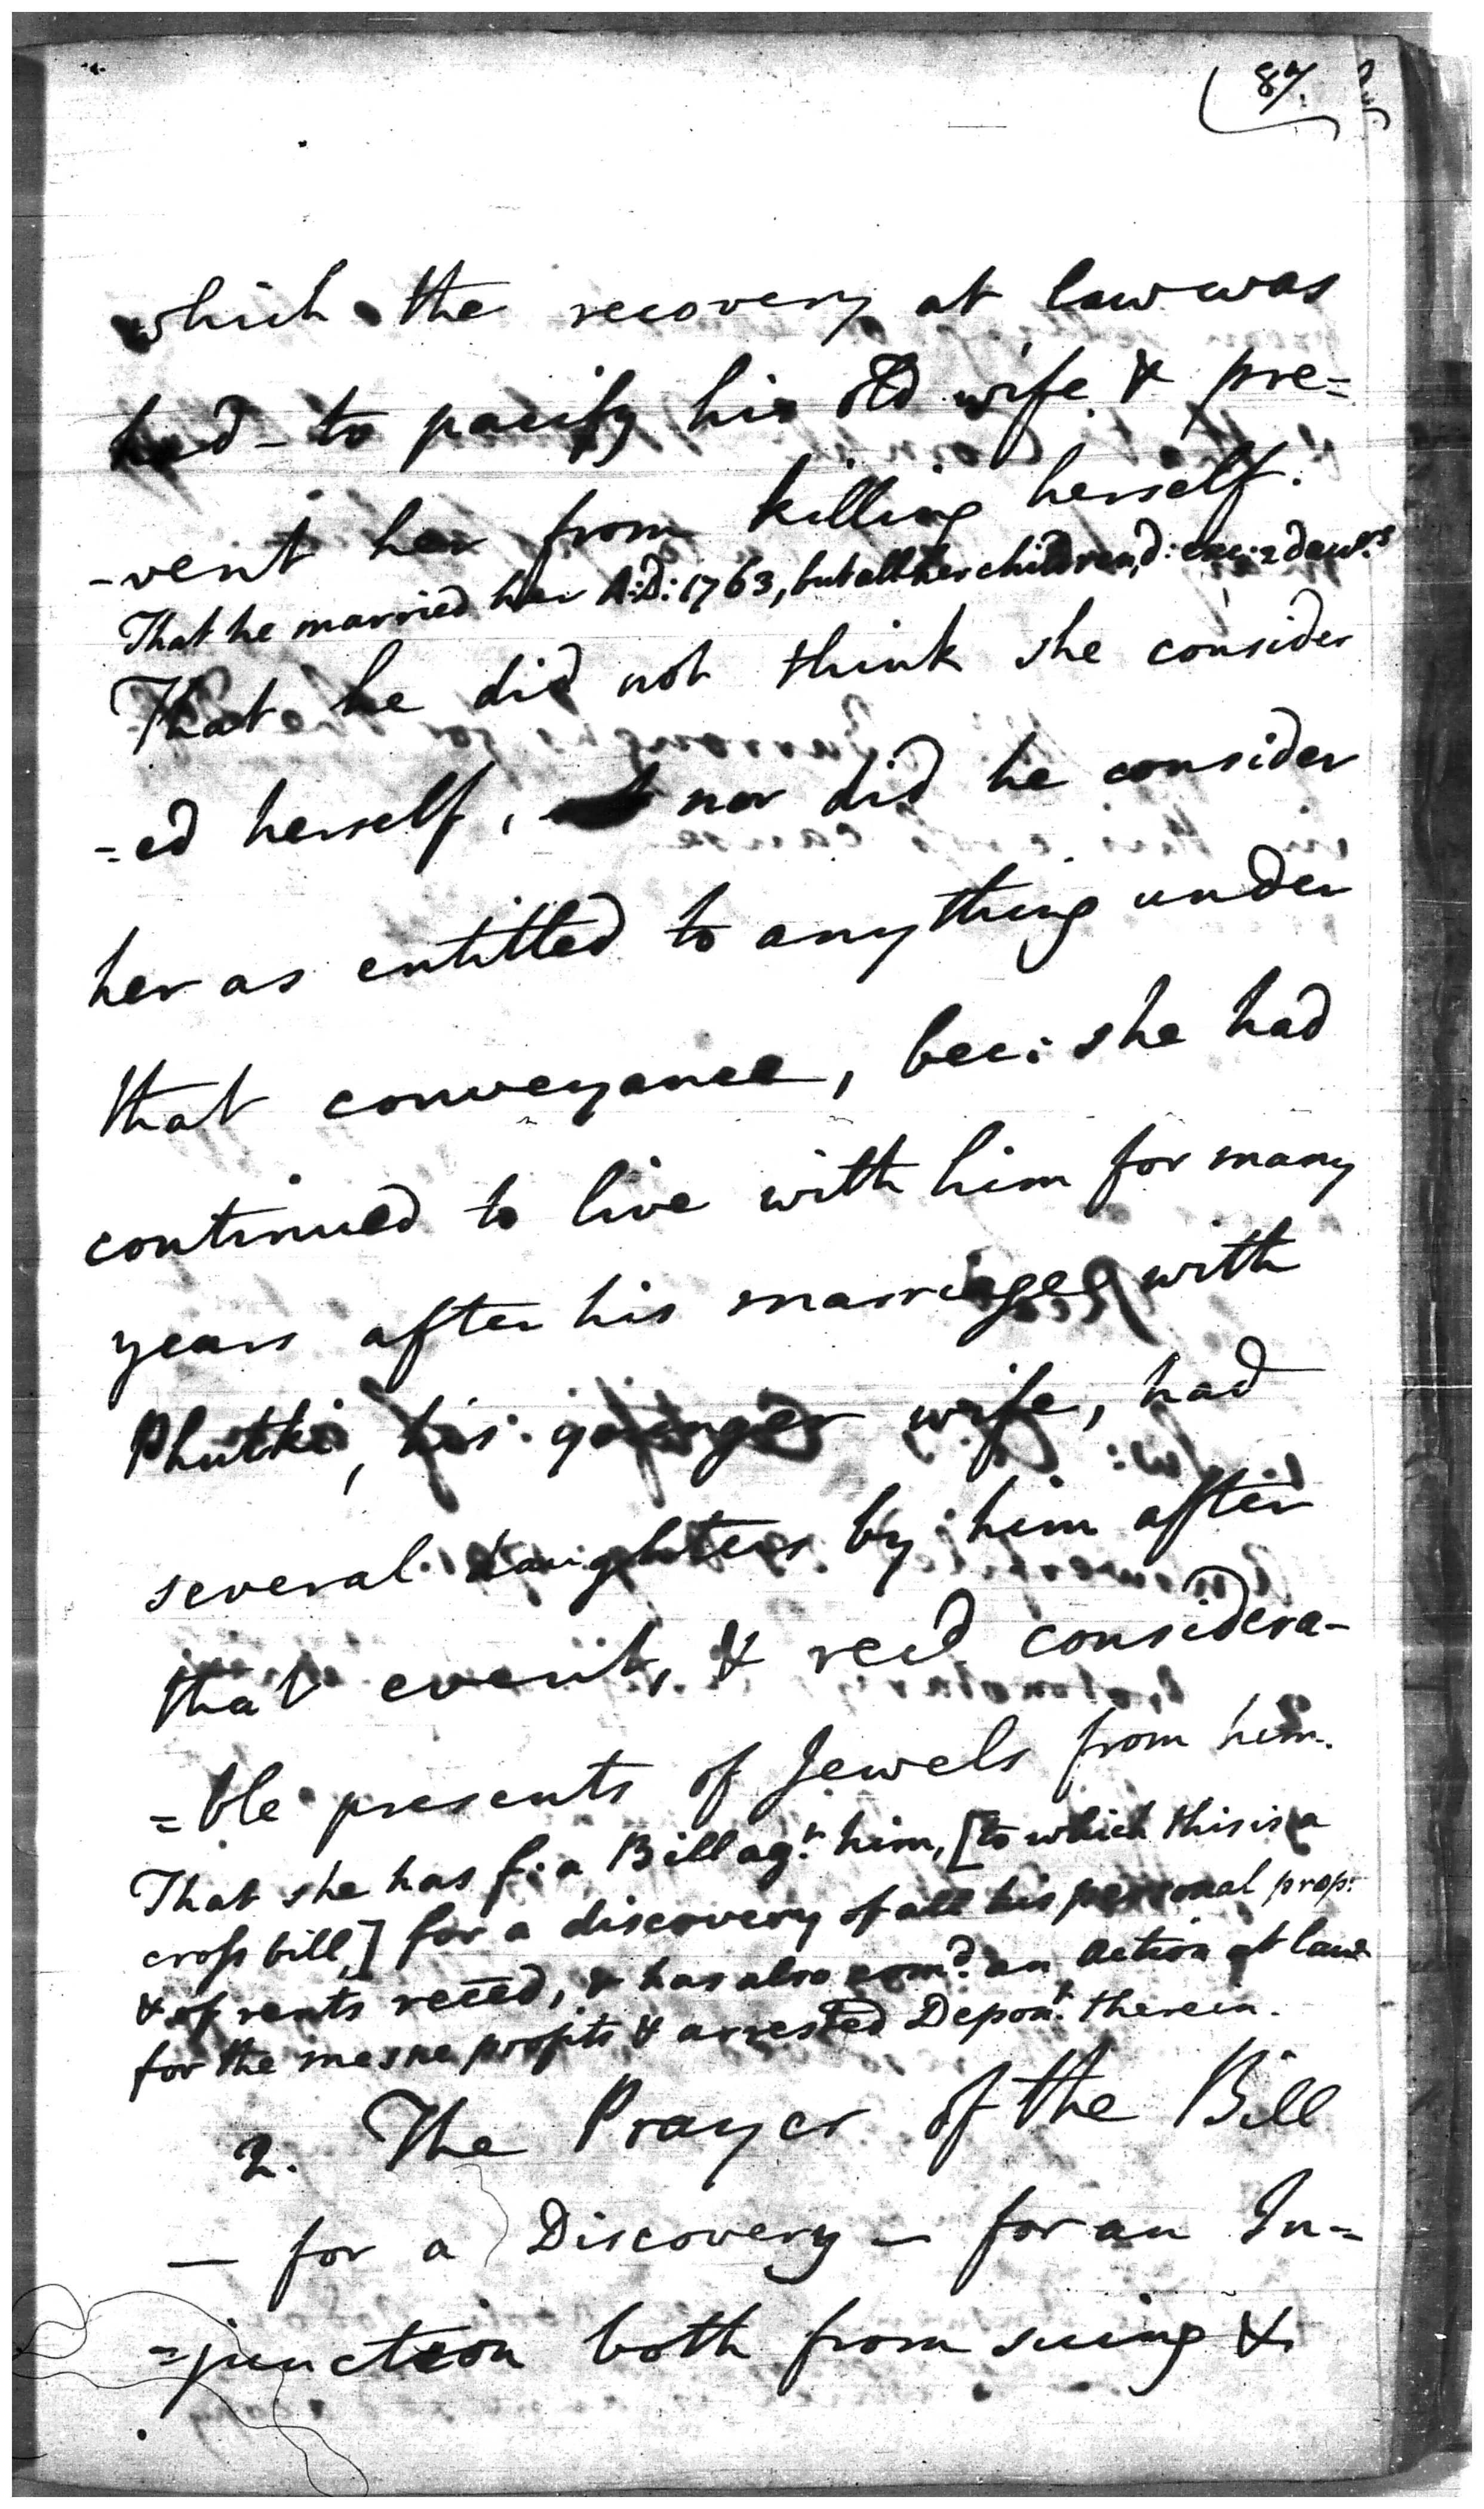 87.
which the recovery at law was
had - to pacify his old wife & pre=
-vent her from killing herself.
That he married her A:D: 1763, but all her children, d: exc: 2 dawrs
That he did not think she consider
=ed herself, nor did he consider
her as entitled to anything under
that conveyance, bec: she had
continued to live with him for many
years after his marriage with
Phutki, his younger wife, had
several daughters by him after
that event, & recd. considera-
=ble presents of Jewels from him.
That she has f: a Bill agt. him, [to which this is a
cross bill,] for a discovery of all his personal prop:
& of rents receed, & has also comd. an action at law
for the mesne profits & arrested Depont. therein.
2. The Prayer of the Bill
— for a Discovery — for an In=
=junction both from suing &